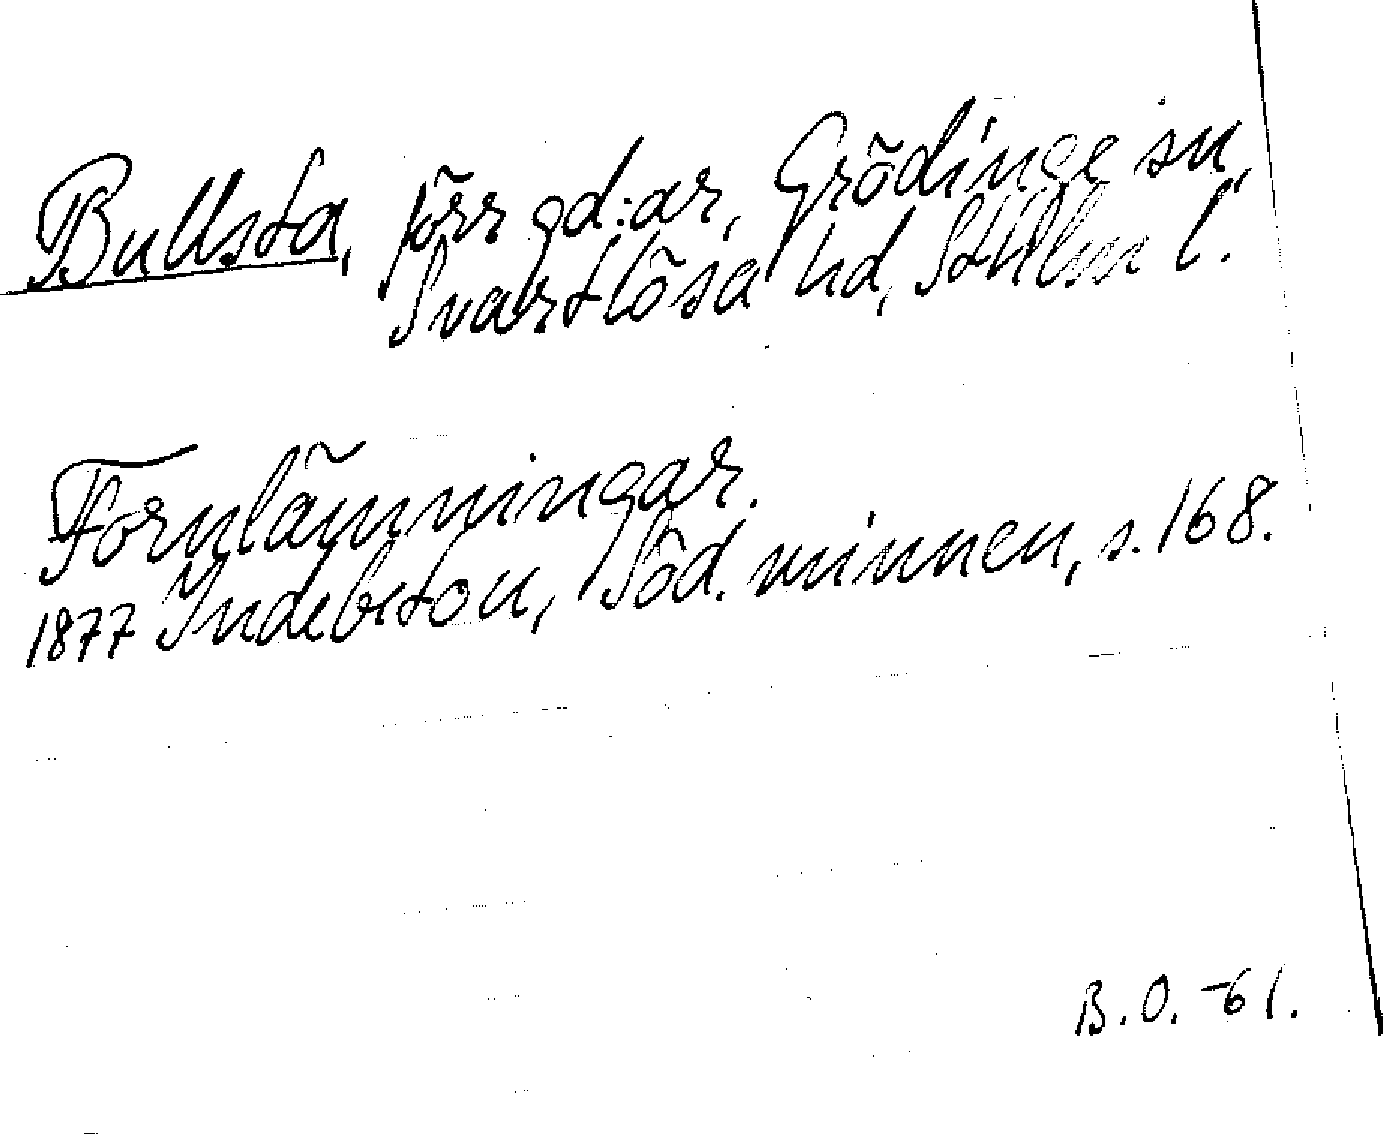 Bullsta, förr gd:ar, Grödinge sn,
Svartlösa hd, Sthlms l.
Fornlämningar.
1877 Indebetou, Söd. minnen, s. 168.
B.O. -61.